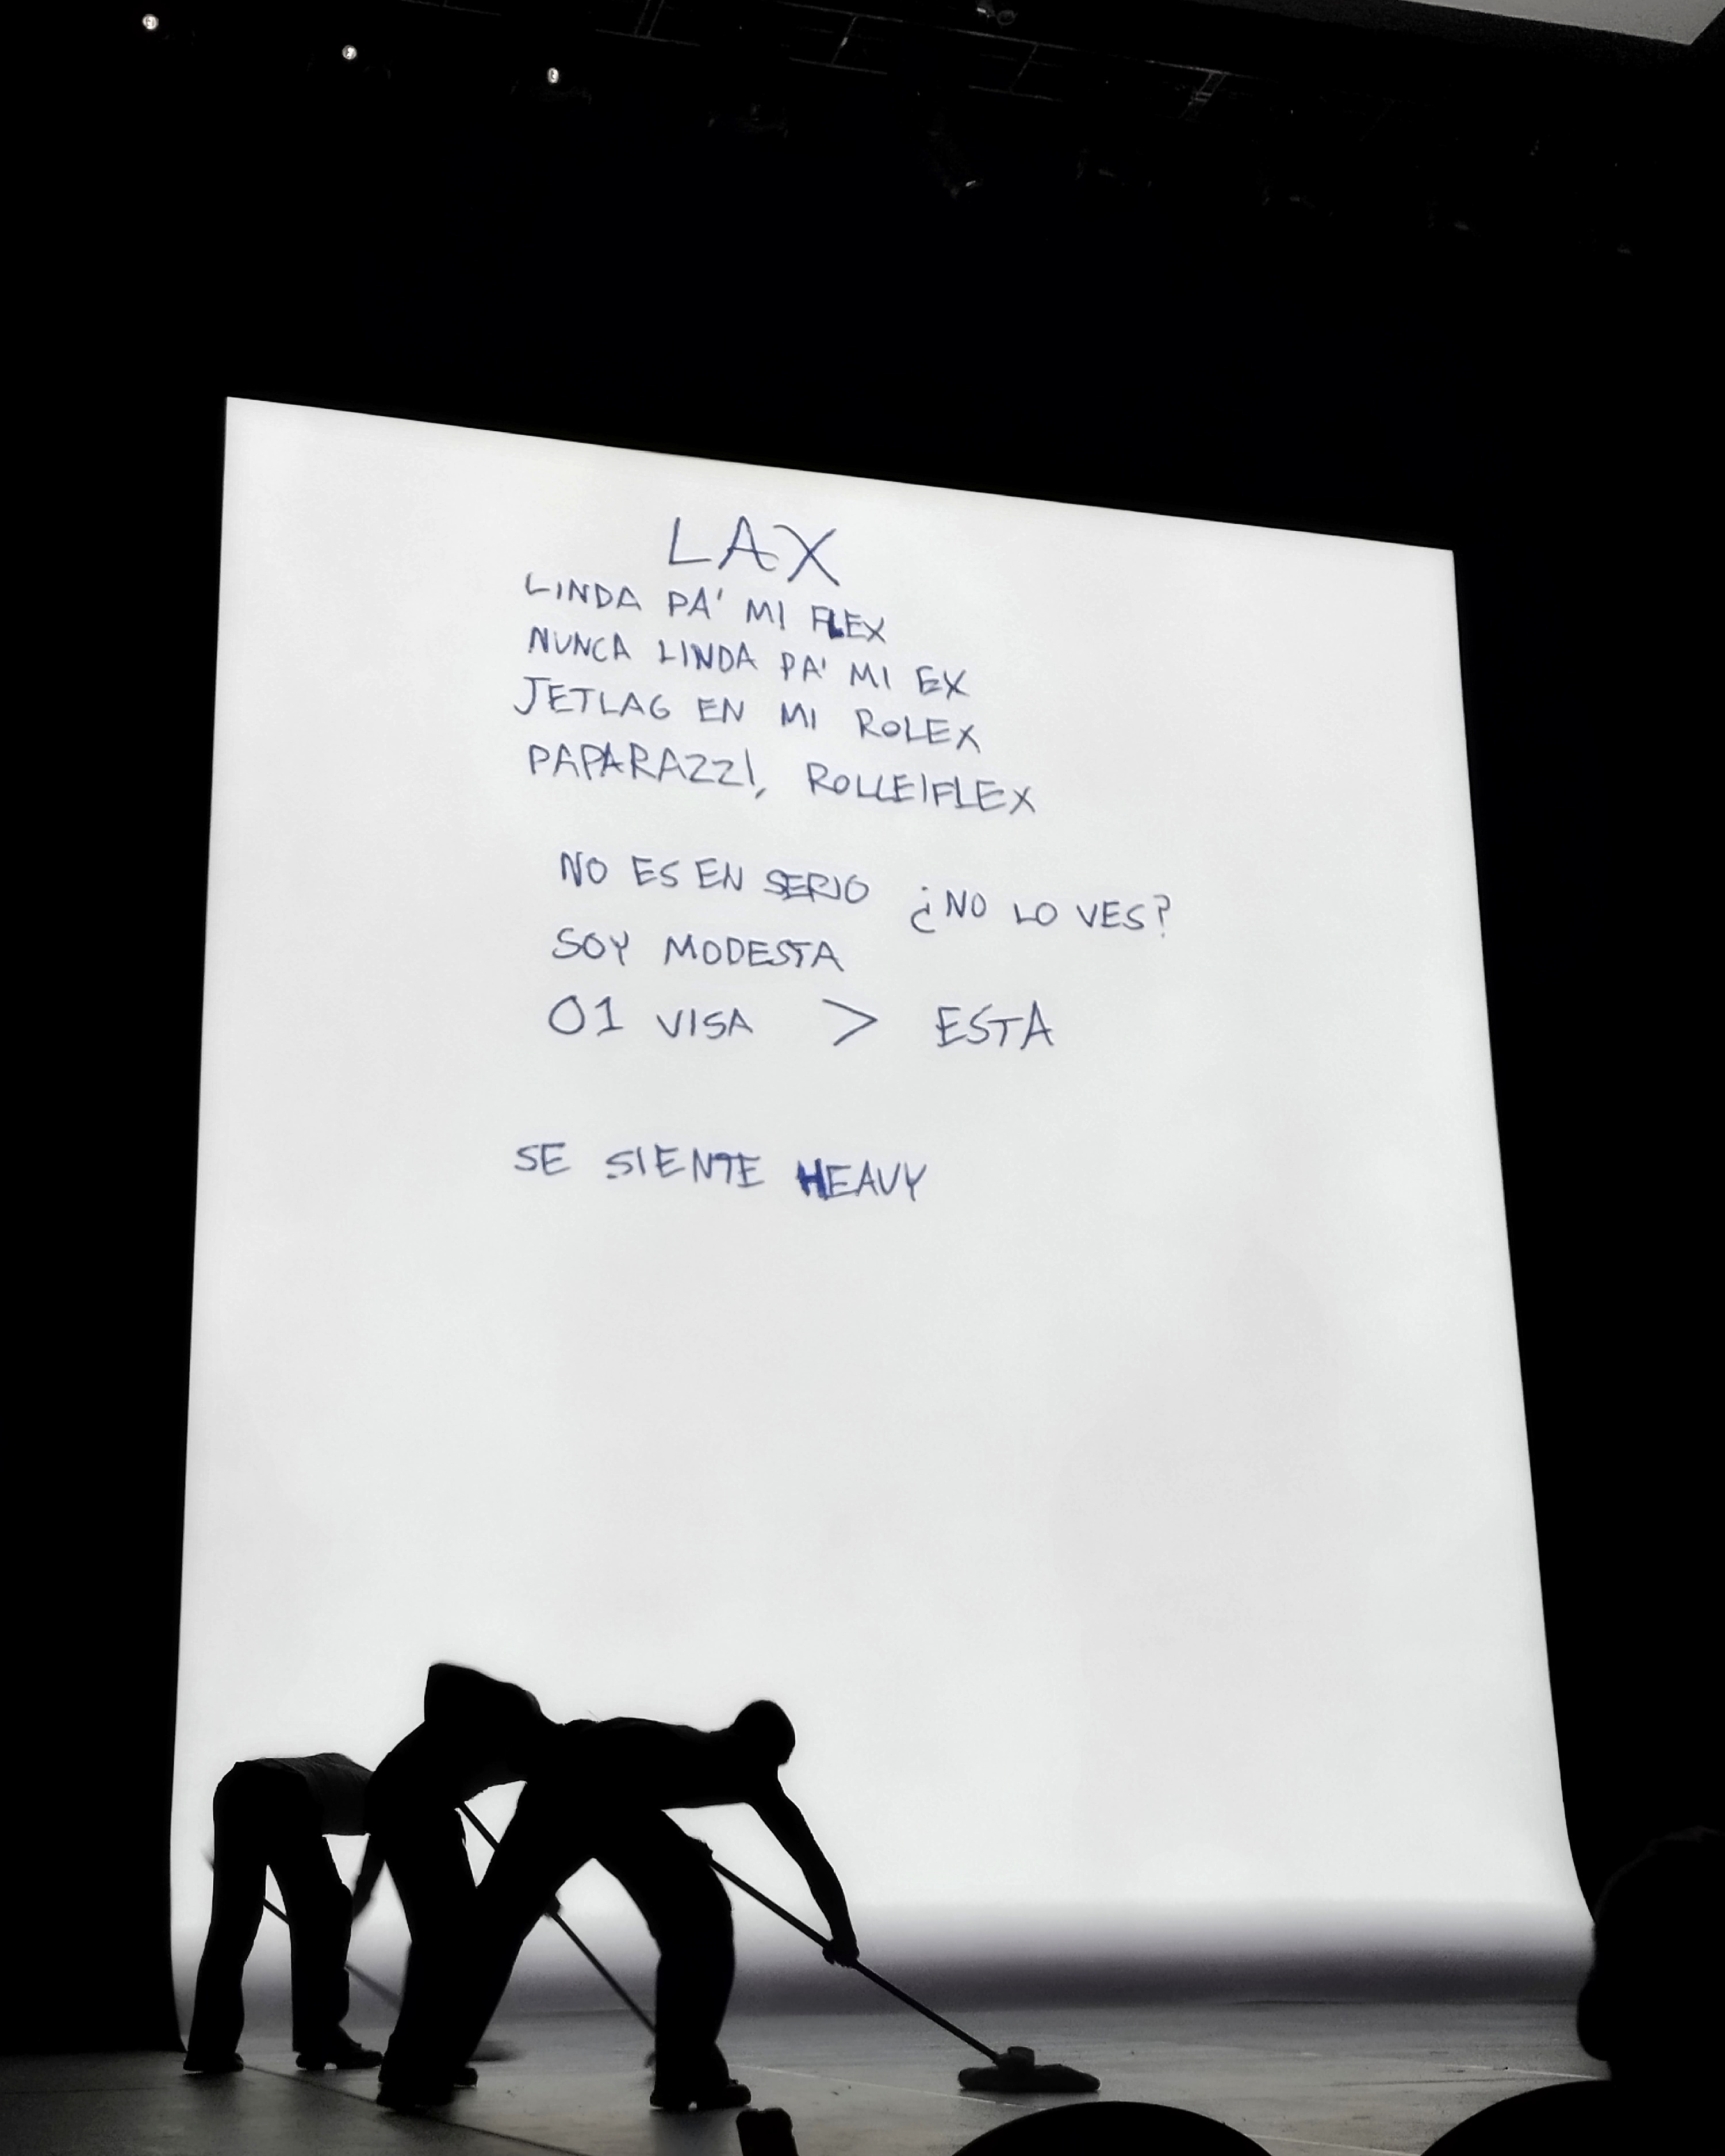 LAX
LINDA PA' MI FLEX
NUNCA LINDA PA' MI EX
JETLAG EN MI ROLEX
PAPARAZZI, ROLLEIFLEX
NO ES EN SERIO ¿NO LO VES?
SOY MODESTA
01 VISA > ESTA
SE SIENTE HEAVY